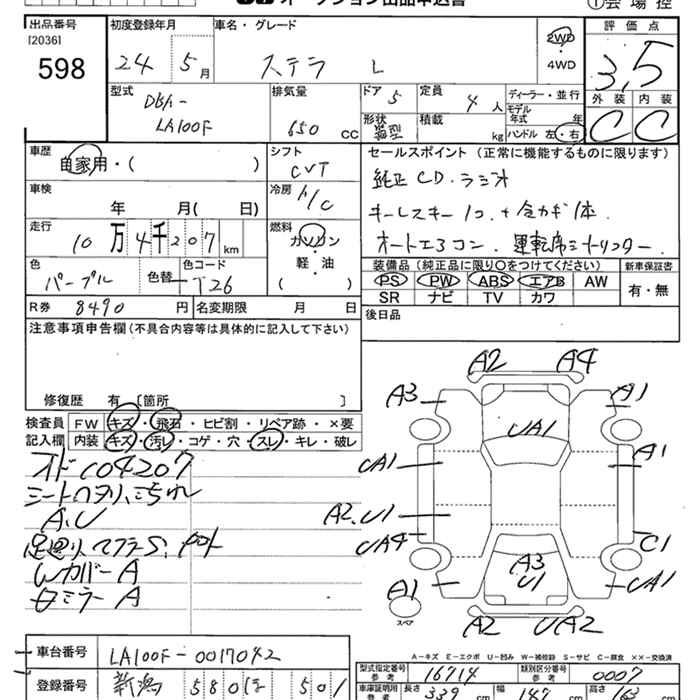 オークション出品申込書 ①会場控
出品番号 初度登録年月 車名・グレード 評価点
[2036]
598 24 5月 ステラ L 2WD 3.5
4WD
型式 排気量 ドア 5 定員 4人 ディーラー・並行 外装 内装
モデル
DBA- 年式 年 C C
LA100F 650 cc 形状 箱型 積載 kg ハンドル 左・右
車歴 シフト セールスポイント (正常に機能するものに限ります)
自家用・( ) CVT 純正CD・ラジオ
車検 冷房
年 月( 日) A/C キーレスキー1コ+合カギ1体
走行 燃料
10万4千207km ガソリン オートエアコン、運転席シートリフター
軽・油
色 色替 色コード 装備品 (純正品に限り〇をつけてください) 新車保証書
パープル T26 ( ) PS PW ABS エアB AW 有・無
SR ナビ TV カワ
R券 8490円 名変期限 月 日 後日品
注意事項申告欄(不具合内容等は具体的に記入して下さい)
修復歴 有 [箇所 ]
検査員 FW キズ・飛石・ヒビ割・リペア跡・×要
記入欄 内装 キズ・汚レ・コゲ・穴・スレ・キレ・破レ
オド104207
シートヘタリ、ミゴレ
A、U
足廻り、マフラーS
Wカバー A
ミラー A
A2 A4
A3 A1
UA1
UA1 A1
A2、U1
UA4 C1
A3
U1
A1 UA1
スペア
A2 UA2
A-キズ E-エクボ U-凹み W-補修跡 S-サビ C-腐食 ××-交換済
車台番号 LA100F-0017042
型式指定番号 参考 16714 類別区分番号 参考 0007
登録番号 新潟 580 501
車庫証明用 参考 長さ 339cm 幅 147cm 高さ 163cm